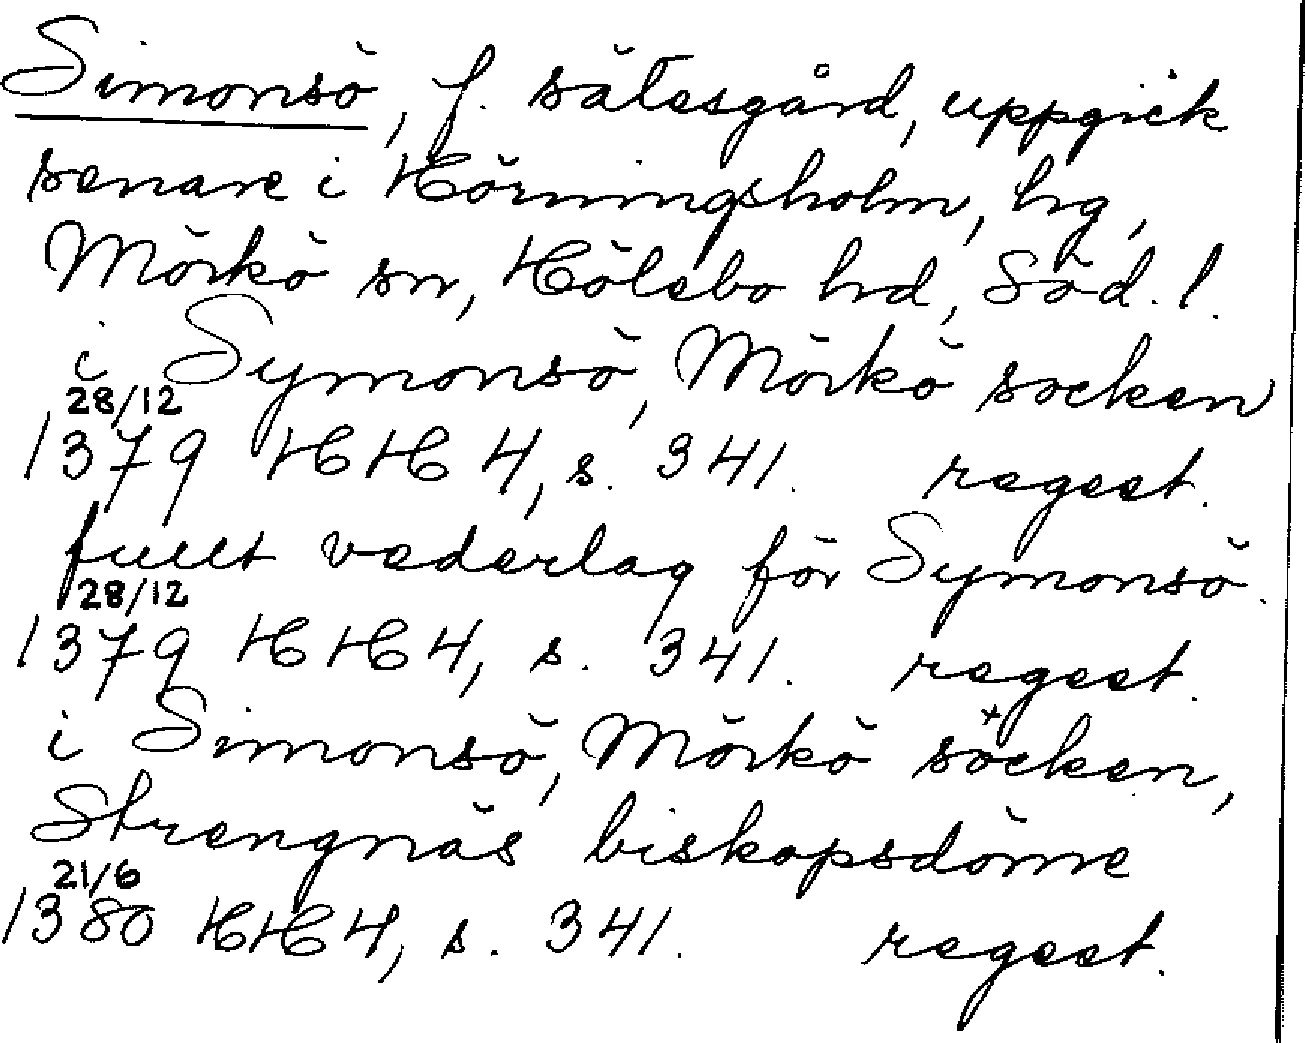 Simonsö, f. sätesgård, uppgick
senare i Hörningsholm, hg,
Mörkö sn, Hölebo hd, Söd. l.
i Symonsö, Mörkö socken
28/12
1379 HH 4, s. 341. regest.
fullt vederlag för Symonsö.
28/12
1379 HH 4, s. 341. regest.
i Simonsö, Mörkö söcken,
Strengnäs biskopsdöme
21/6
1380 HH 4, s. 341. regest.